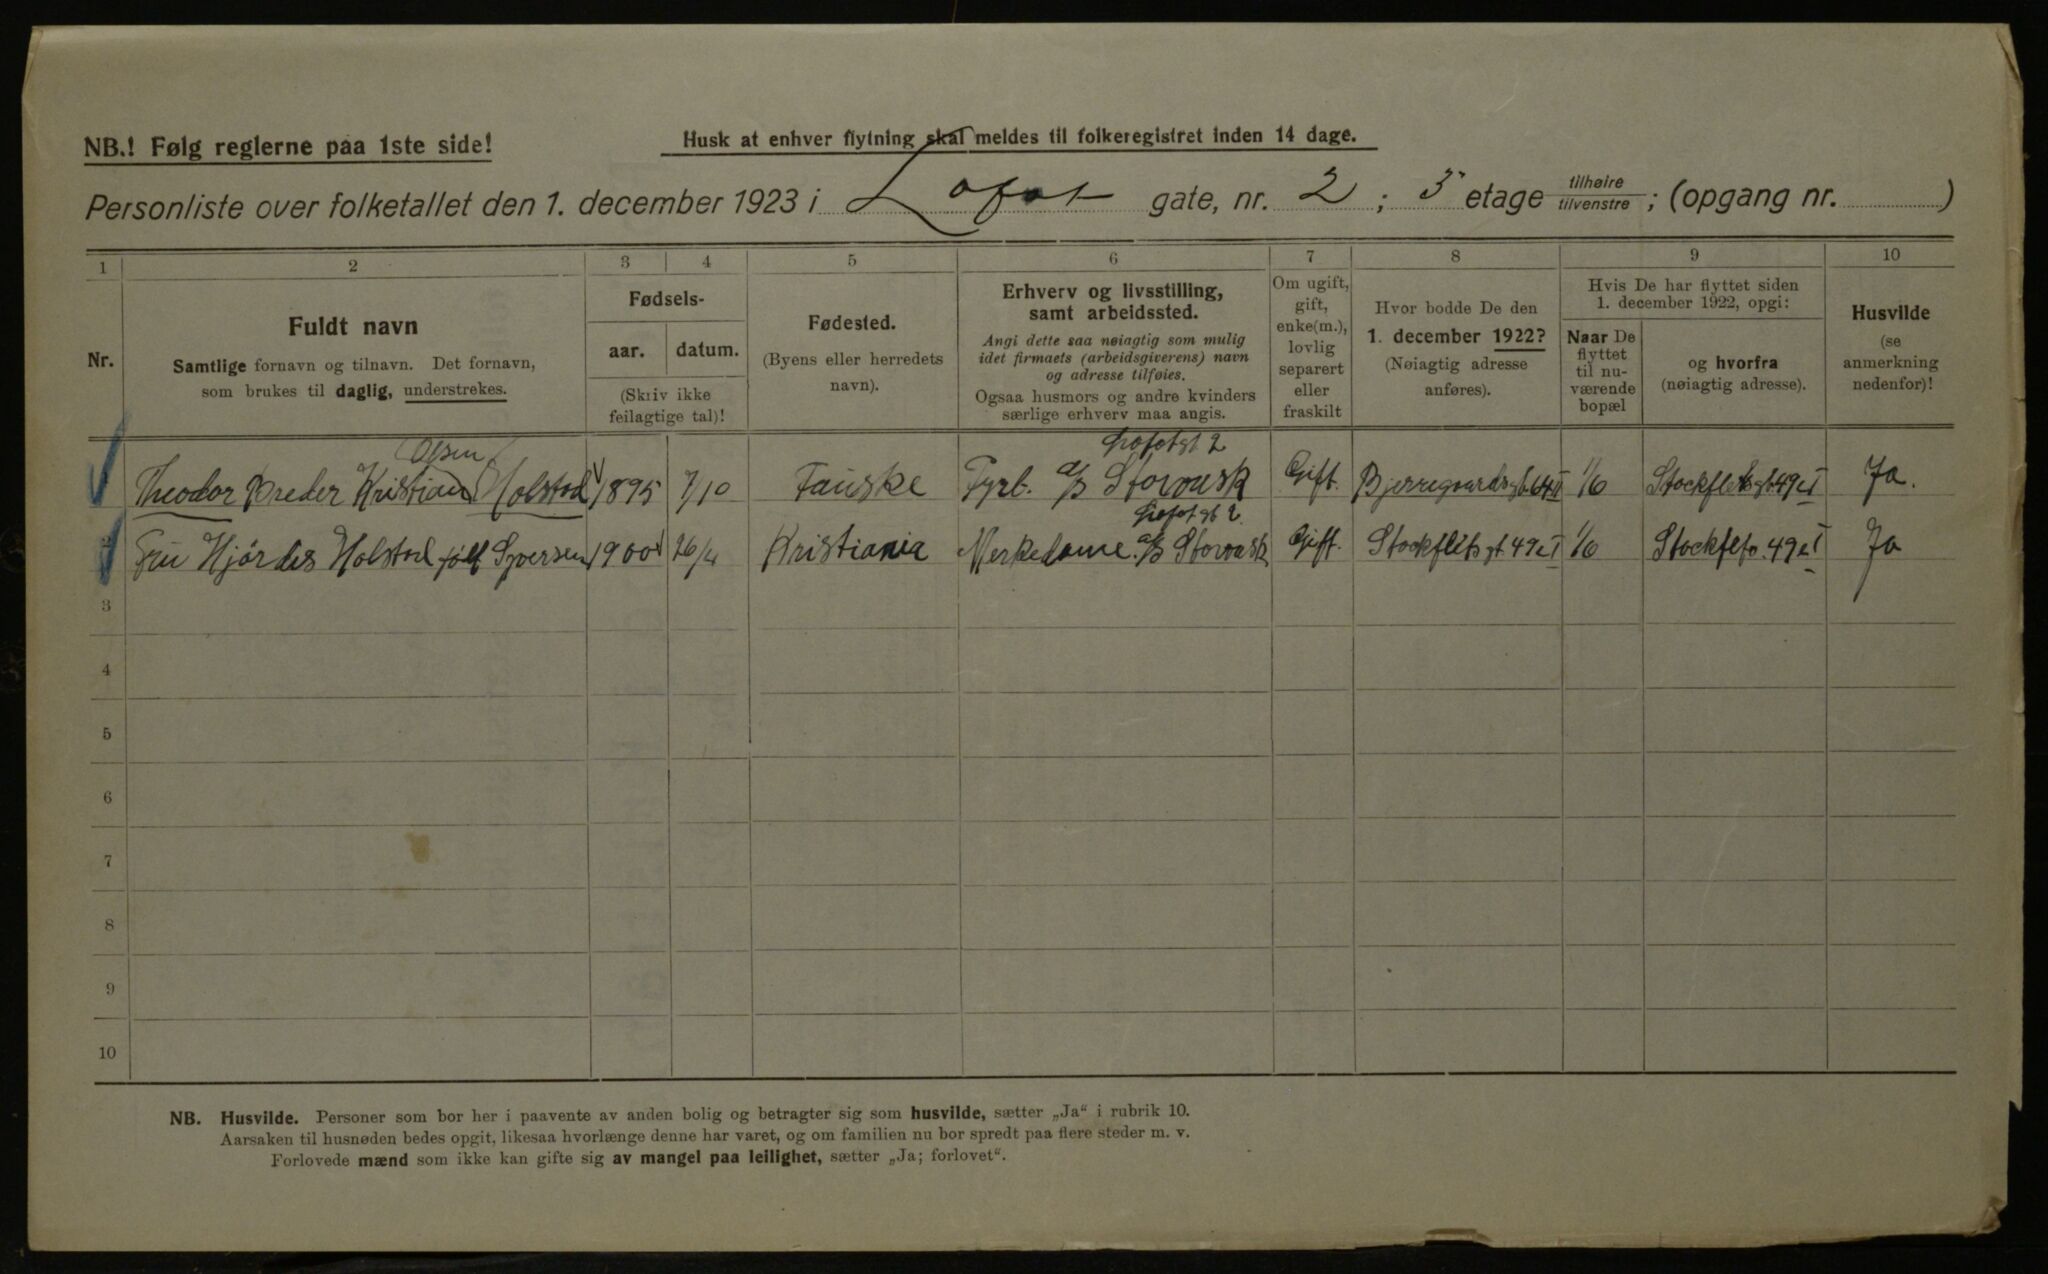 NB.! Følg reglerne paa 1ste side!
Husk at enhver flytning skal meldes til folkeregistret inden 14 dage.
Personliste over folketallet den 1. december 1923 i Lofot gate, nr. 2 ; 3 etage tilhøire tilvenstre ; (opgang nr. )
1 2 3 4 5 6 7 8 9 10
Nr.
Fuldt navn
Samtlige fornavn og tilnavn. Det fornavn,
som brukes til daglig, understrekes.
Fødsels-
aar. datum.
(Skriv ikke
feilagtige tal)!
Fødested.
(Byens eller herredets
navn).
Erhverv og livsstilling,
samt arbeidssted.
Angi dette saa nøiagtig som mulig
idet firmaets (arbeidsgiverens) navn
og adresse tilføies.
Ogsaa husmors og andre kvinders
særlige erhverv maa angis.
Om ugift,
gift,
enke(m.),
lovlig
separert
eller
fraskilt
Hvor bodde De den
1. december 1922?
(Nøiagtig adresse
anføres).
Hvis De har flyttet siden
1. december 1922, opgi:
Naar De
flyttet
til nu-
værende
bopæl
og hvorfra
(nøiagtig adresse).
Husvilde
(se
anmerkning
nedenfor)!
Olsen Lofotgt 2
Theodor Preder Kristian Holstad 1895 7/10 Fauske Fyrb. a/s Stowask Gift. Bjerregaardsgt. 64 II 1/6 Stockfletsgt. 49 e I Ja.
Lofotgt 2.
Fru Hjørdis Holstad født Syversen 1900 26/4 Kristiania Merkedame a/s Stowask Gift. Stockfletsgt. 49 e I 1/6 Stockflets. 49 e I Ja
3
4
5
6
7
8
9
10
NB. Husvilde. Personer som bor her i paavente av anden bolig og betragter sig som husvilde, sætter „Ja“ i rubrik 10.
Aarsaken til husnøden bedes opgit, likesaa hvorlænge denne har varet, og om familien nu bor spredt paa flere steder m. v.
Forlovede mænd som ikke kan gifte sig av mangel paa leilighet, sætter „Ja; forlovet“.